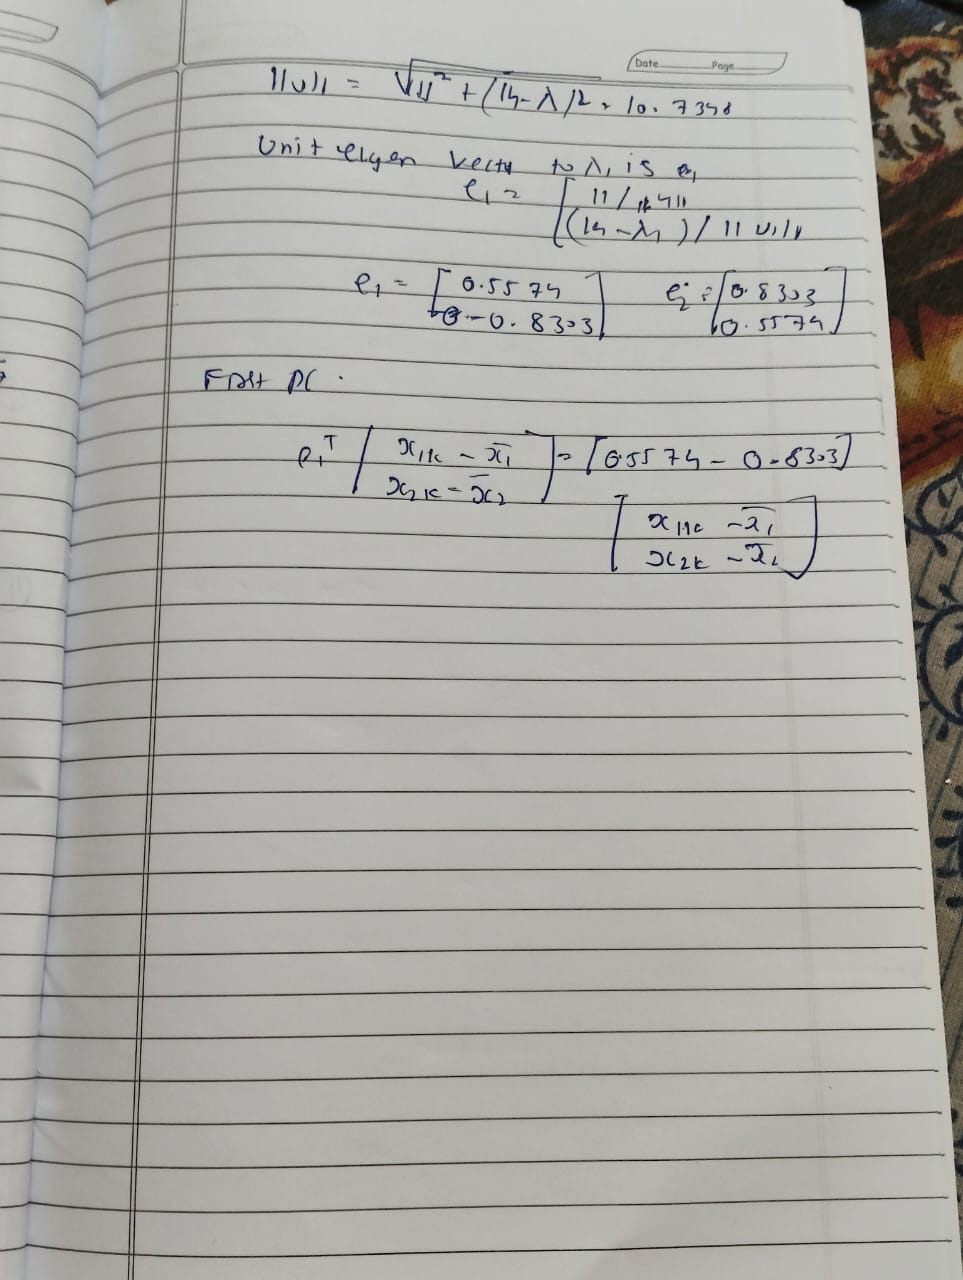 Date Page
||u|| = √11² + (14-λ)2 = 10.7348
Unit eigen vectu to λ₁ is e₁
e₁ = [ 11/||u||
(14-λ₁)/||u₁|| 
e₁ = [ 0.5574
-0.8303 ]
e₂ = [ 0.8303
0.5574 ]
First PC.
e₁ᵀ [ x₁ₖ - x̄₁
x₂ₖ - x̄₂ ] = [0.5574 - 0.8303]
[ x₁ₖ - x̄₁
x₂ₖ - x̄₂ ]